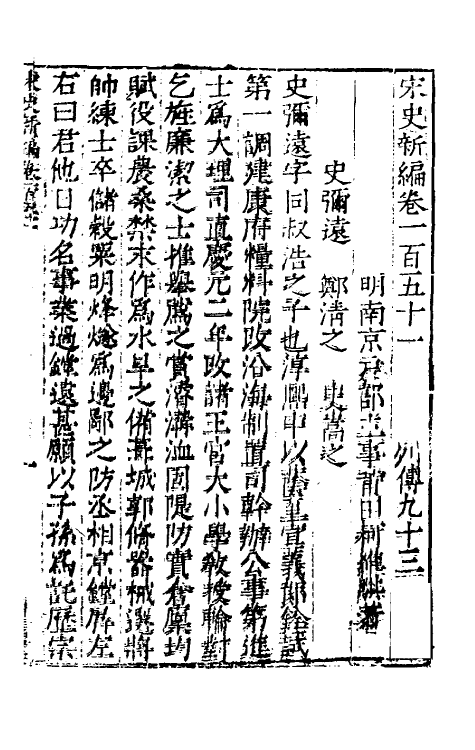 宋史新編卷一百五十一　列傳九十三
明南京戶部主事前田柯維騏著
史彌遠　鄭清之　史嵩之
史彌遠字同叔浩之子也淳熙中以蔭補宣義郎銓試
第一調建康府糧料院改沿海制置司幹辦公事第進
士爲大理司直慶元二年改諸王宮大小學教授輪對
乞旌廉潔之士推舉薦之賞濬溝洫固隄防實倉廩均
賦役課農桑禁末作爲水旱之備葺城郭修器械選將
帥練士卒儲穀粟明烽燧爲邊鄙之防丞相京鏜屏左
右曰君他日功名事業過鏜遠甚願以子孫爲託歷宗
宋史新編卷一百五十一
一